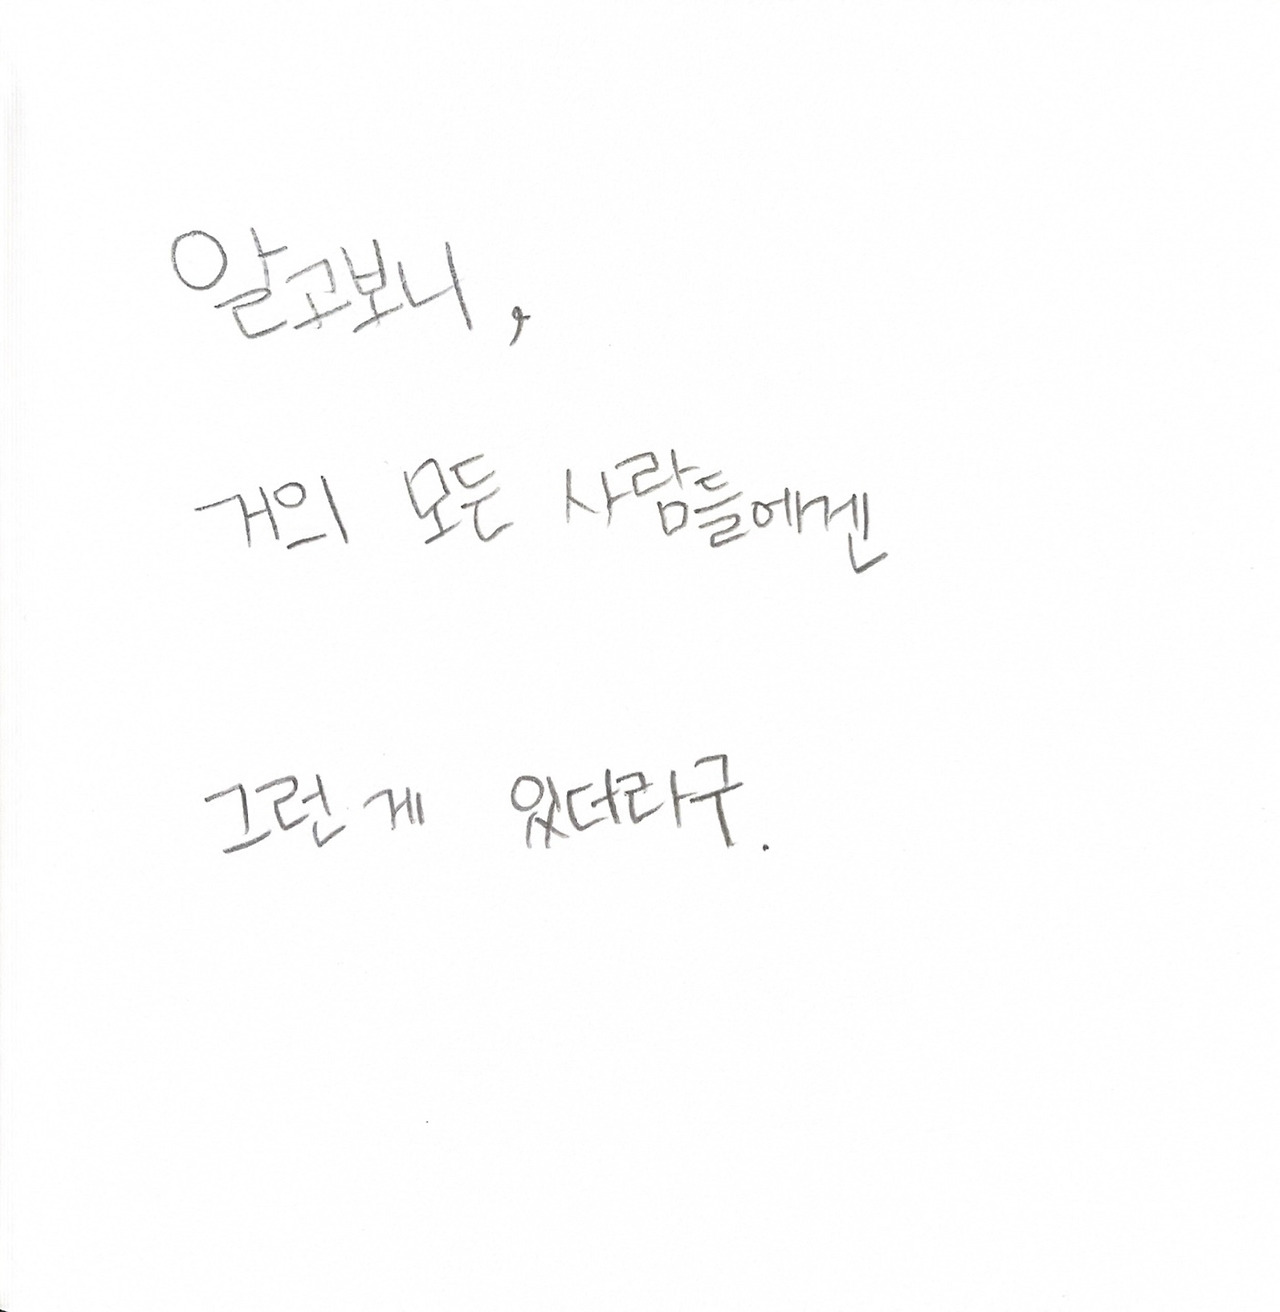 알고보니,
거의 모든 사람들에겐
그런 게 있더라구.